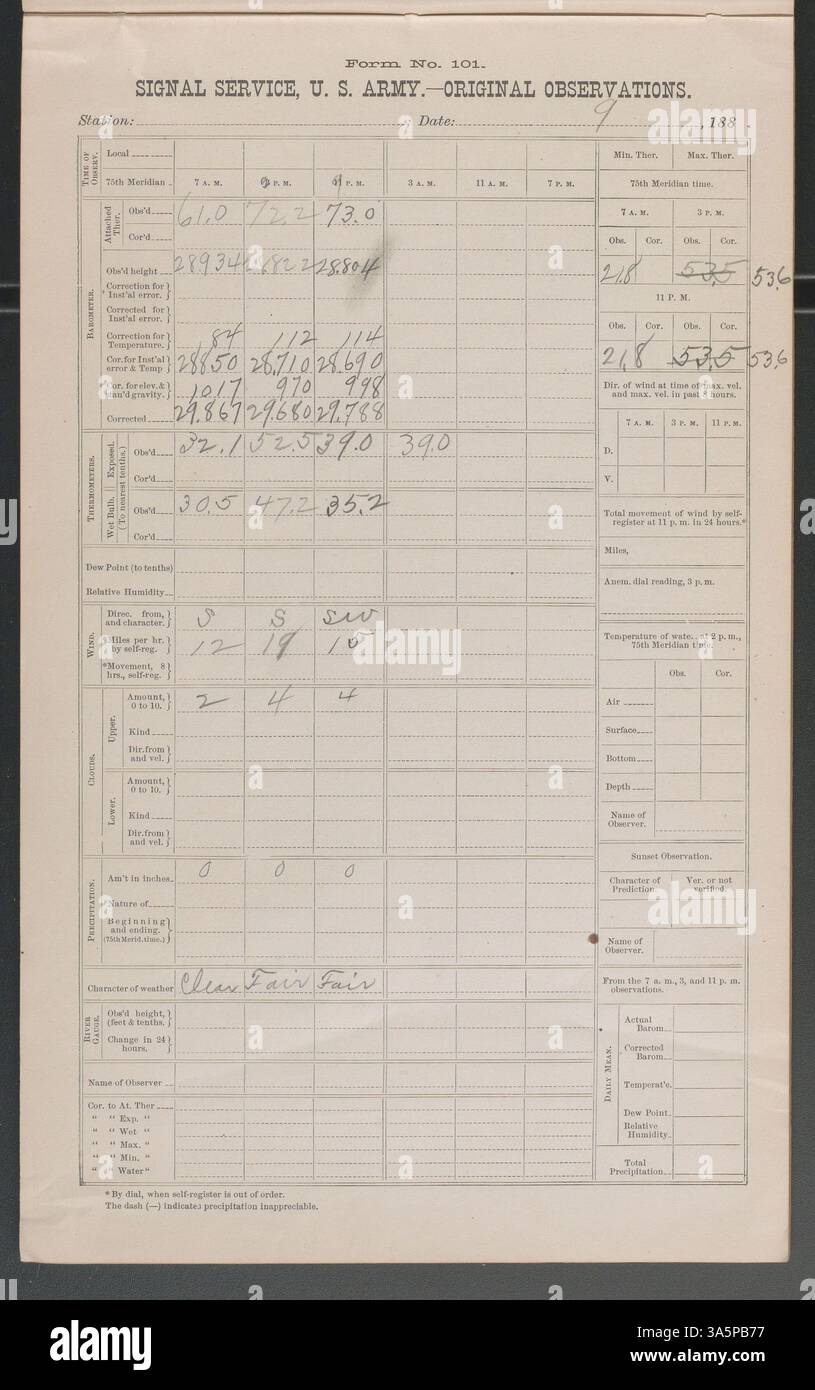 Form No. 101.
SIGNAL SERVICE, U. S. ARMY.—ORIGINAL OBSERVATIONS.
Station: ; Date: 9 , 188 .
TIME OF OBSERV.
Local
75th Meridian 7 A. M. P. M. P. M. 3 A. M. 11 A. M. 7 P. M.
BAROMETER.
Attached Ther.
Obs'd 61.0 72.2 73.0
Cor'd
Obs'd height 28.934 28.822 28.804
Correction for Inst'al error.
Corrected for Inst'al error.
Correction for Temperature. 84 112 114
Cor. for Inst'al error & Temp 28850 28.710 28.690
Cor. for elev. & stan'd gravity. 1017 970 998
Corrected 29.867 29.680 29.788
THERMOMETERS.
Exposed. Wet Bulb. (To nearest tenths.)
Obs'd 32.1 52.5 39.0 39.0
Cor'd
Obs'd 30.5 47.2 35.2
Cor'd
Dew Point (to tenths)
Relative Humidity
WIND.
Direc. from, and character. S S SW
Miles per hr. by self-reg. 12 19 15
*Movement, 8 hrs., self-reg.
CLOUDS.
Upper.
Amount, 0 to 10. 2 4 4
Kind
Dir. from and vel.
Lower.
Amount, 0 to 10.
Kind
Dir. from and vel.
PRECIPITATION.
Am't in inches 0 0 0
Nature of
Beginning and ending. (75th Merid. time.)
Character of weather Clear Fair Fair
RIVER GAUGE.
Obs'd height, (feet & tenths.)
Change in 24 hours.
Name of Observer
Cor. to At. Ther
“ “ Exp. “
“ “ Wet “
“ “ Max. “
“ “ Min. “
“ “ Water “
* By dial, when self-register is out of order.
The dash (—) indicates precipitation inappreciable.
Min. Ther. Max. Ther.
75th Meridian time.
7 A. M. 3 P. M.
Obs. Cor. Obs. Cor.
21.8 53.5 53.6
11 P. M.
Obs. Cor. Obs. Cor.
21.8 53.5 53.6
Dir. of wind at time of max. vel. and max. vel. in past 8 hours.
7 A. M. 3 P. M. 11 P. M.
D.
V.
Total movement of wind by self-register at 11 p. m. in 24 hours.*
Miles,
Anem. dial reading, 3 p. m.
Temperature of water, at 2 p. m., 75th Meridian time.
Obs. Cor.
Air
Surface
Bottom
Depth
Name of Observer.
Sunset Observation.
Character of Prediction. Ver. or not verified.
Name of Observer.
From the 7 a. m., 3, and 11 p. m. observations.
DAILY MEAN.
Actual Barom.
Corrected Barom.
Temperat'e.
Dew Point.
Relative Humidity.
Total Precipitation.
alamy
alamy
alamy
alamy
a
a
alamy
Image ID: 3A5PB77
www.alamy.com